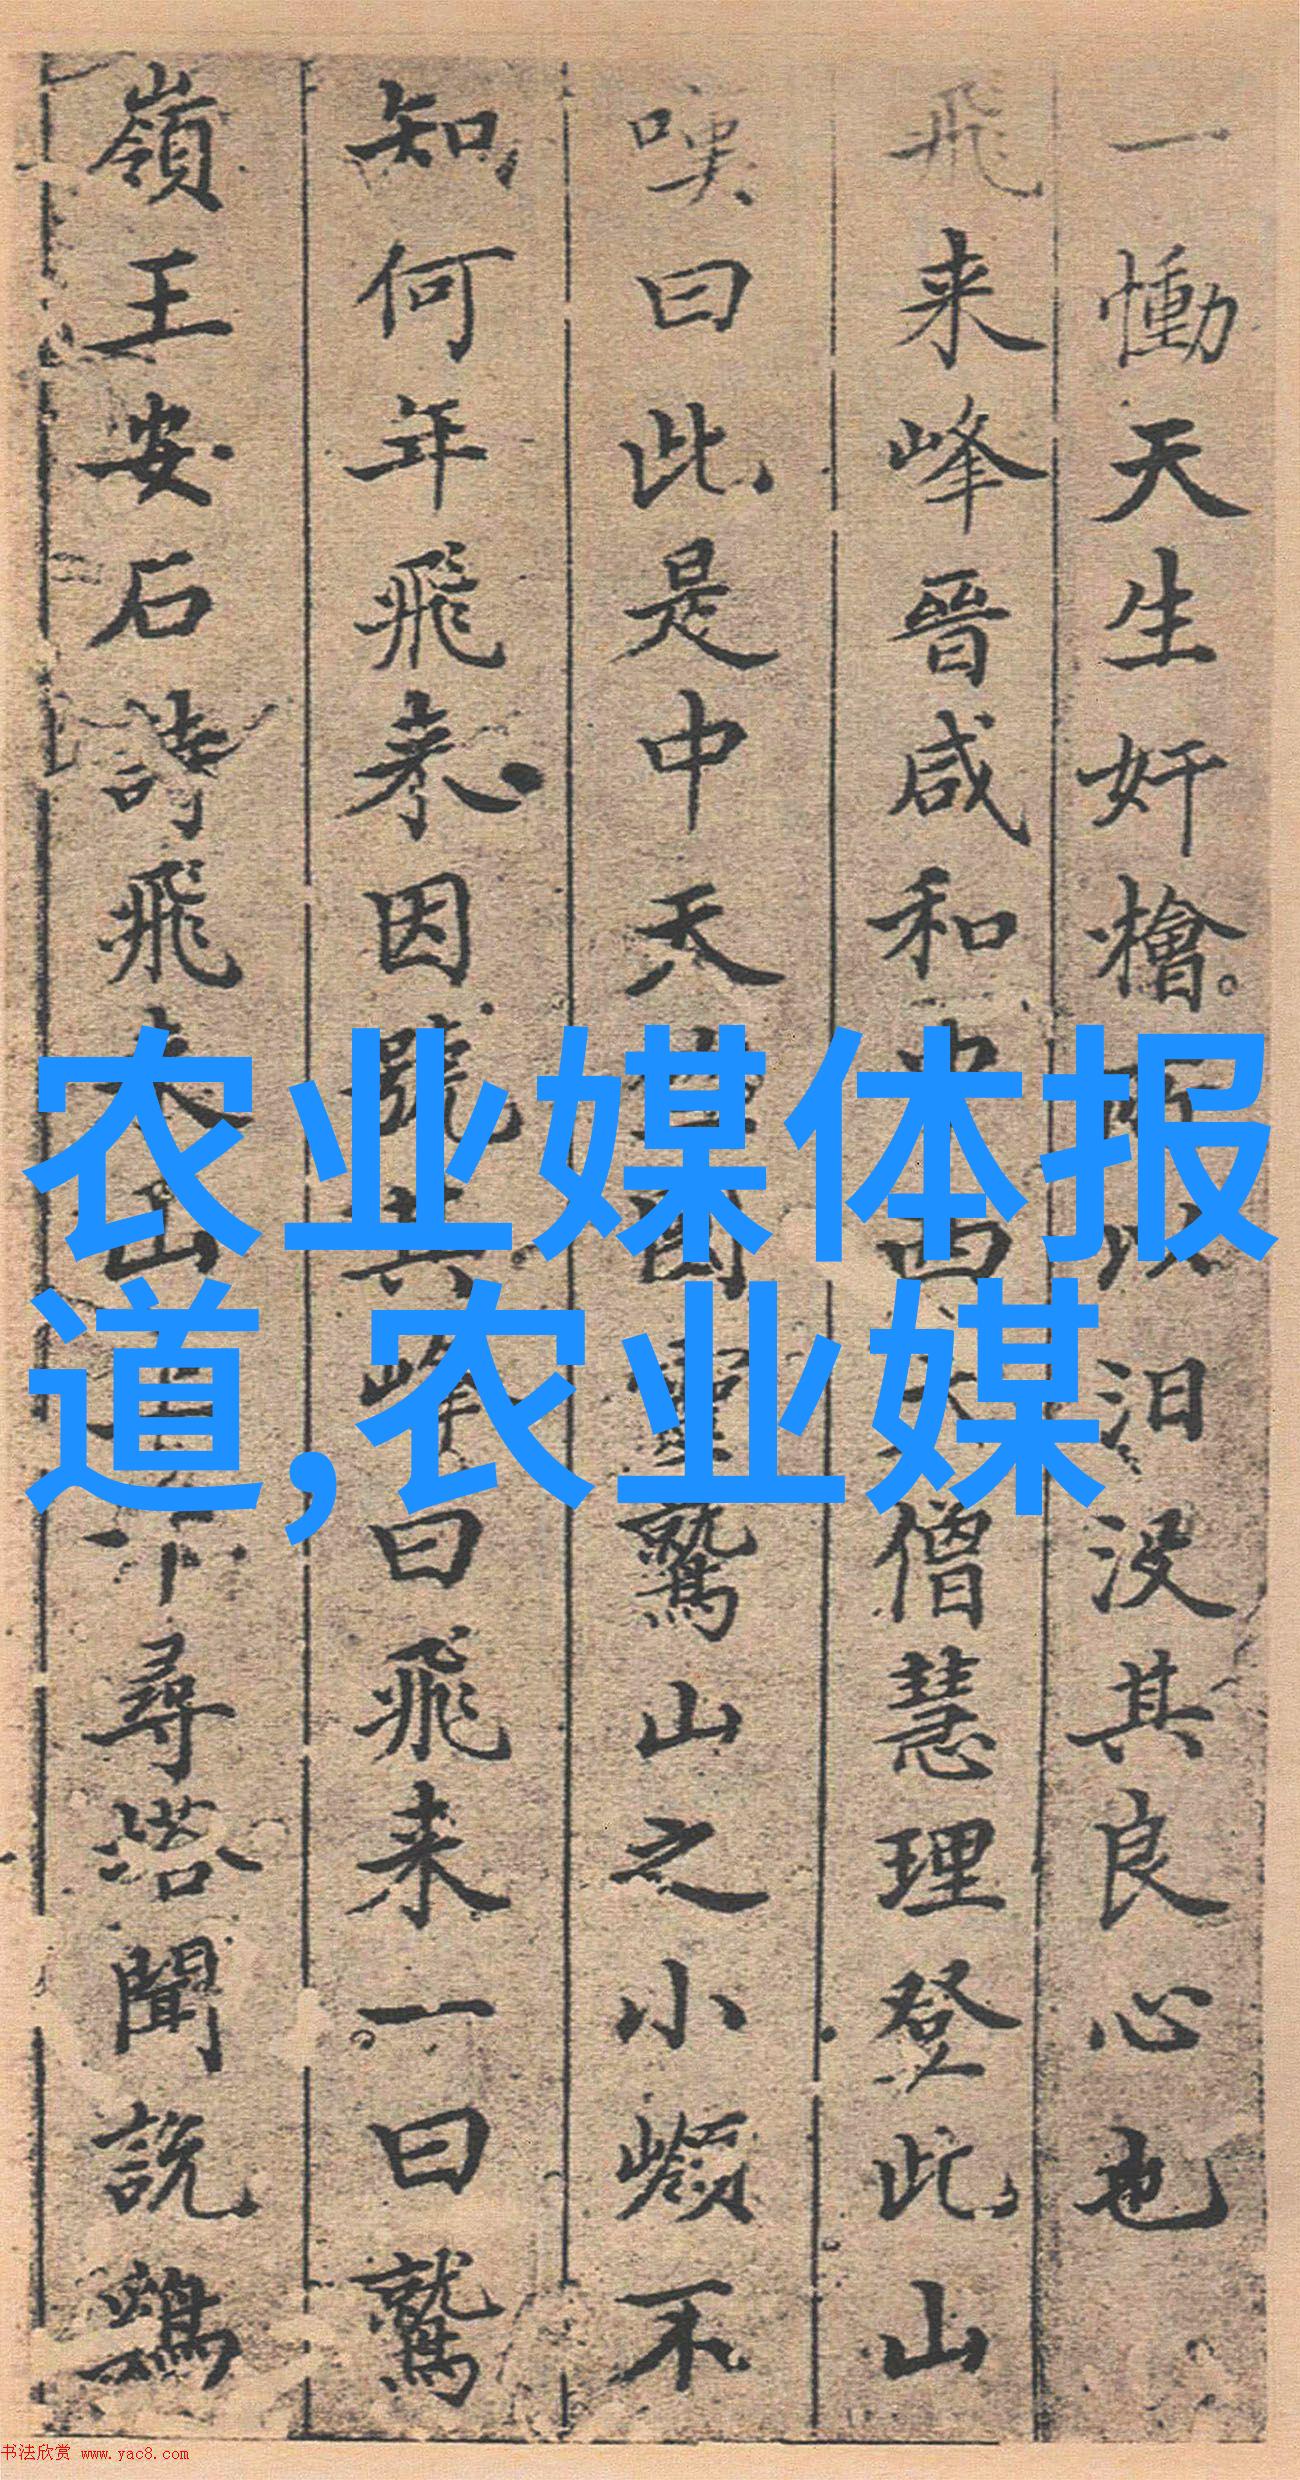 一慟天生奸檜
汨没其良心也
飛来峰晉咸和
西
僧慧理登此山
嘆曰此是中天
國靈鷲山之小嶺不
知何年飛来因號其峰曰飛来一曰鷲
嶺王安石詩飛来山上千尋塔聞説鷄
农业媒体报
道,农业媒
书法欣赏 www.yac8.com